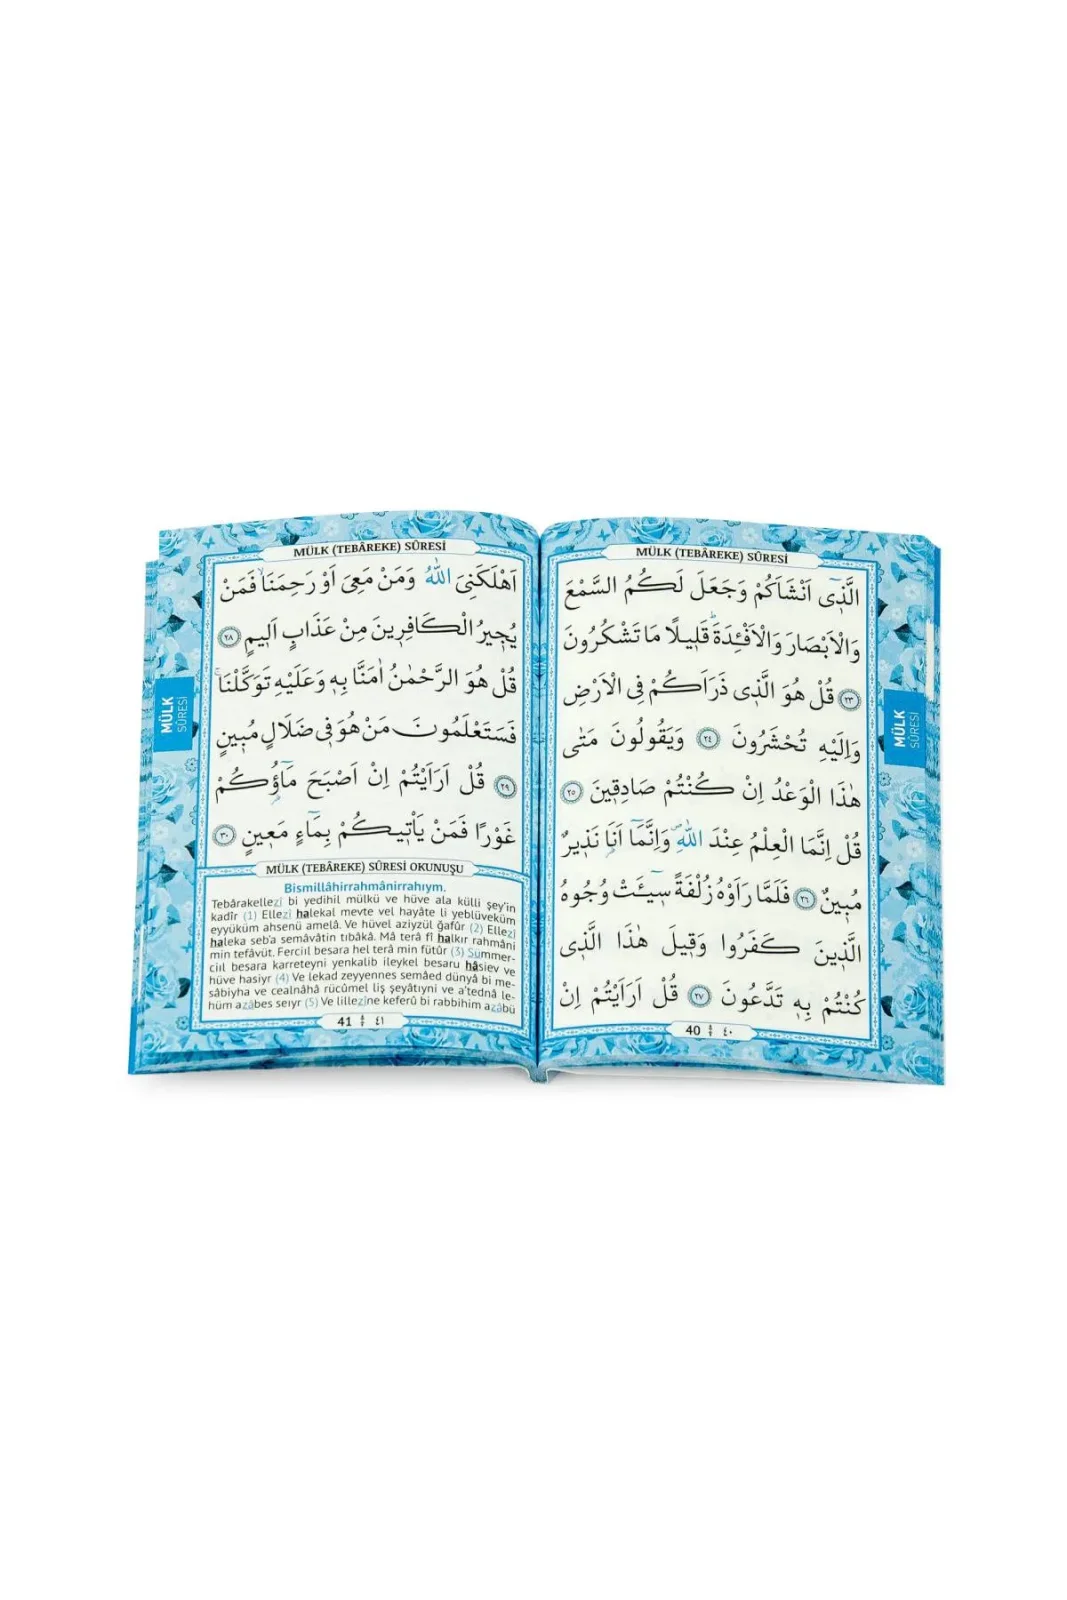 MÜLK (TEBÂREKE) SÛRESİ
الَّذ۪ٓى اَنْشَاَكُمْ وَجَعَلَ لَكُمُ السَّمْعَ
وَالْاَبْصَارَ وَالْاَفْـِٔدَةَۜ قَل۪يلًا مَا تَشْكُرُونَ
﴿٢٣﴾ قُلْ هُوَ الَّذ۪ى ذَرَاَكُمْ فِى الْاَرْضِ
وَاِلَيْهِ تُحْشَرُونَ ﴿٢٤﴾ وَيَقُولُونَ مَتٰى
هٰذَا الْوَعْدُ اِنْ كُنْتُمْ صَادِق۪ينَ ﴿٢٥﴾
قُلْ اِنَّمَا الْعِلْمُ عِنْدَ اللّٰهِۖ وَاِنَّمَٓا اَنَا۬ نَذ۪يرٌ
مُب۪ينٌ ﴿٢٦﴾ فَلَمَّا رَاَوْهُ زُلْفَةً س۪ٓيـَٔتْ وُجُوهُ
الَّذ۪ينَ كَفَرُوا وَق۪يلَ هٰذَا الَّذ۪ى
كُنْتُمْ بِه۪ تَدَّعُونَ ﴿٢٧﴾ قُلْ اَرَاَيْتُمْ اِنْ
40 ٤٠
MÜLK
SÛRESİ
MÜLK (TEBÂREKE) SÛRESİ
اَهْلَكَنِىَ اللّٰهُ وَمَنْ مَعِىَ اَوْ رَحِمَنَاۙ فَمَنْ
يُج۪يرُ الْكَافِر۪ينَ مِنْ عَذَابٍ اَل۪يمٍ ﴿٢٨﴾
قُلْ هُوَ الرَّحْمٰنُ اٰمَنَّا بِه۪ وَعَلَيْهِ تَوَكَّلْنَاۚ
فَسَتَعْلَمُونَ مَنْ هُوَ ف۪ى ضَلَالٍ مُب۪ينٍ
﴿٢٩﴾ قُلْ اَرَاَيْتُمْ اِنْ اَصْبَحَ مَٓاؤُ۬كُمْ
غَوْرًا فَمَنْ يَأْت۪يكُمْ بِمَٓاءٍ مَع۪ينٍ ﴿٣٠﴾
MÜLK (TEBÂREKE) SÛRESİ OKUNUŞU
Bismillâhirrahmânirrahıym.
Tebârakellezî bi yedihil mülkü ve hüve ala külli şey'in
kadîr (1) Ellezî halekal mevte vel hayâte li yeblüveküm
eyyüküm ahsenü amelâ. Ve hüvel aziyzül ğafûr (2) Ellezî
haleka seb'a semâvâtin tıbâkâ. Mâ terâ fî halkır rahmâni
min tefâvüt. Ferciıl besara hel terâ min fütûr (3) Sümmer-
ciıl besara karreteyni yenkalib ileykel besaru hâsiev ve
hüve hasiyr (4) Ve lekad zeyyennes semâed dünyâ bi me-
sâbiyha ve cealnâhâ rücûmel liş şeyâtıyni ve a'tednâ le-
hüm azâbes seıyr (5) Ve lillezîne keferû bi rabbihim azâbü
41 ٤١
MÜLK
SÛRESİ